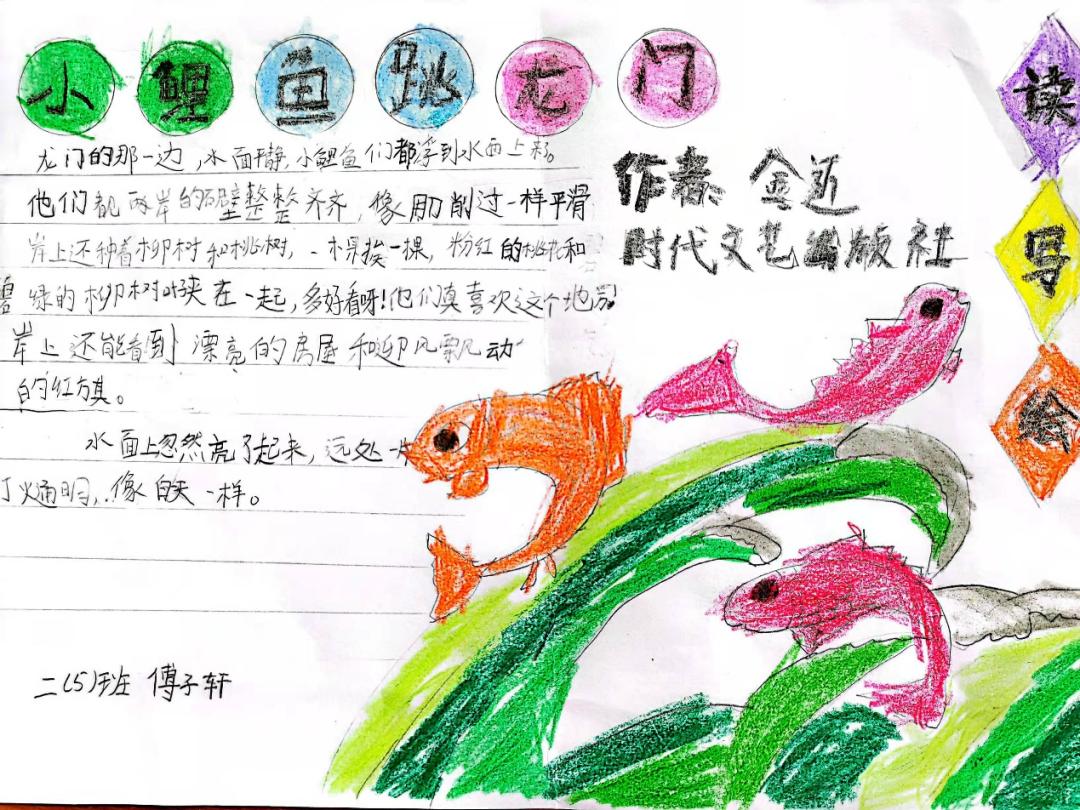 小鲤鱼跳龙门
读
写
绘
作者: 金近
时代文艺出版社
龙门的那一边,水面平静,小鲤鱼们都浮到水面上来。
他们看两岸的石壁整整齐齐,像用刀削过一样平滑
岸上还种着柳树和桃树,一棵挨一棵,粉红的桃花和
碧绿的柳树叶夹在一起,多好看呀!他们真喜欢这个地方。
岸上还能看到漂亮的房屋和迎风飘动
的红旗。
水面上忽然亮了起来,远处一片
灯火通明,像白天一样。
二(5)班 傅子轩